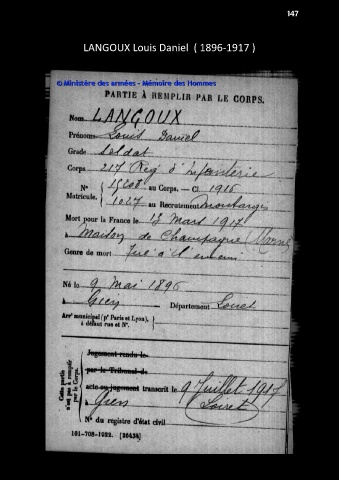 147
LANGOUX Louis Daniel ( 1896-1917 )
© Ministère des armées - Mémoire des Hommes
PARTIE À REMPLIR PAR LE CORPS.
Nom LANGOUX
Prénoms Louis Daniel
Grade Soldat
Corps 217 Reg d'Infanterie
N° 15208 au Corps. — Cl. 1916
Matricule. 1027 au Recrutement Montargis
Mort pour la France le 12 Mars 1917
à Maison de Champagne (Marne
Genre de mort Tué à l'ennemi
Né le 9 Mai 1896
à Gien Département Loiret
Arr' municipal (p' Paris et Lyon),
à défaut rue et N°.
Cette partie n'est pas à remplir par le Corps.
Jugement rendu le
par le Tribunal de
acte ou jugement transcrit le 9 Juillet 1917
à Gien Loiret
N° du registre d'état civil
101-708-1922. [26438]